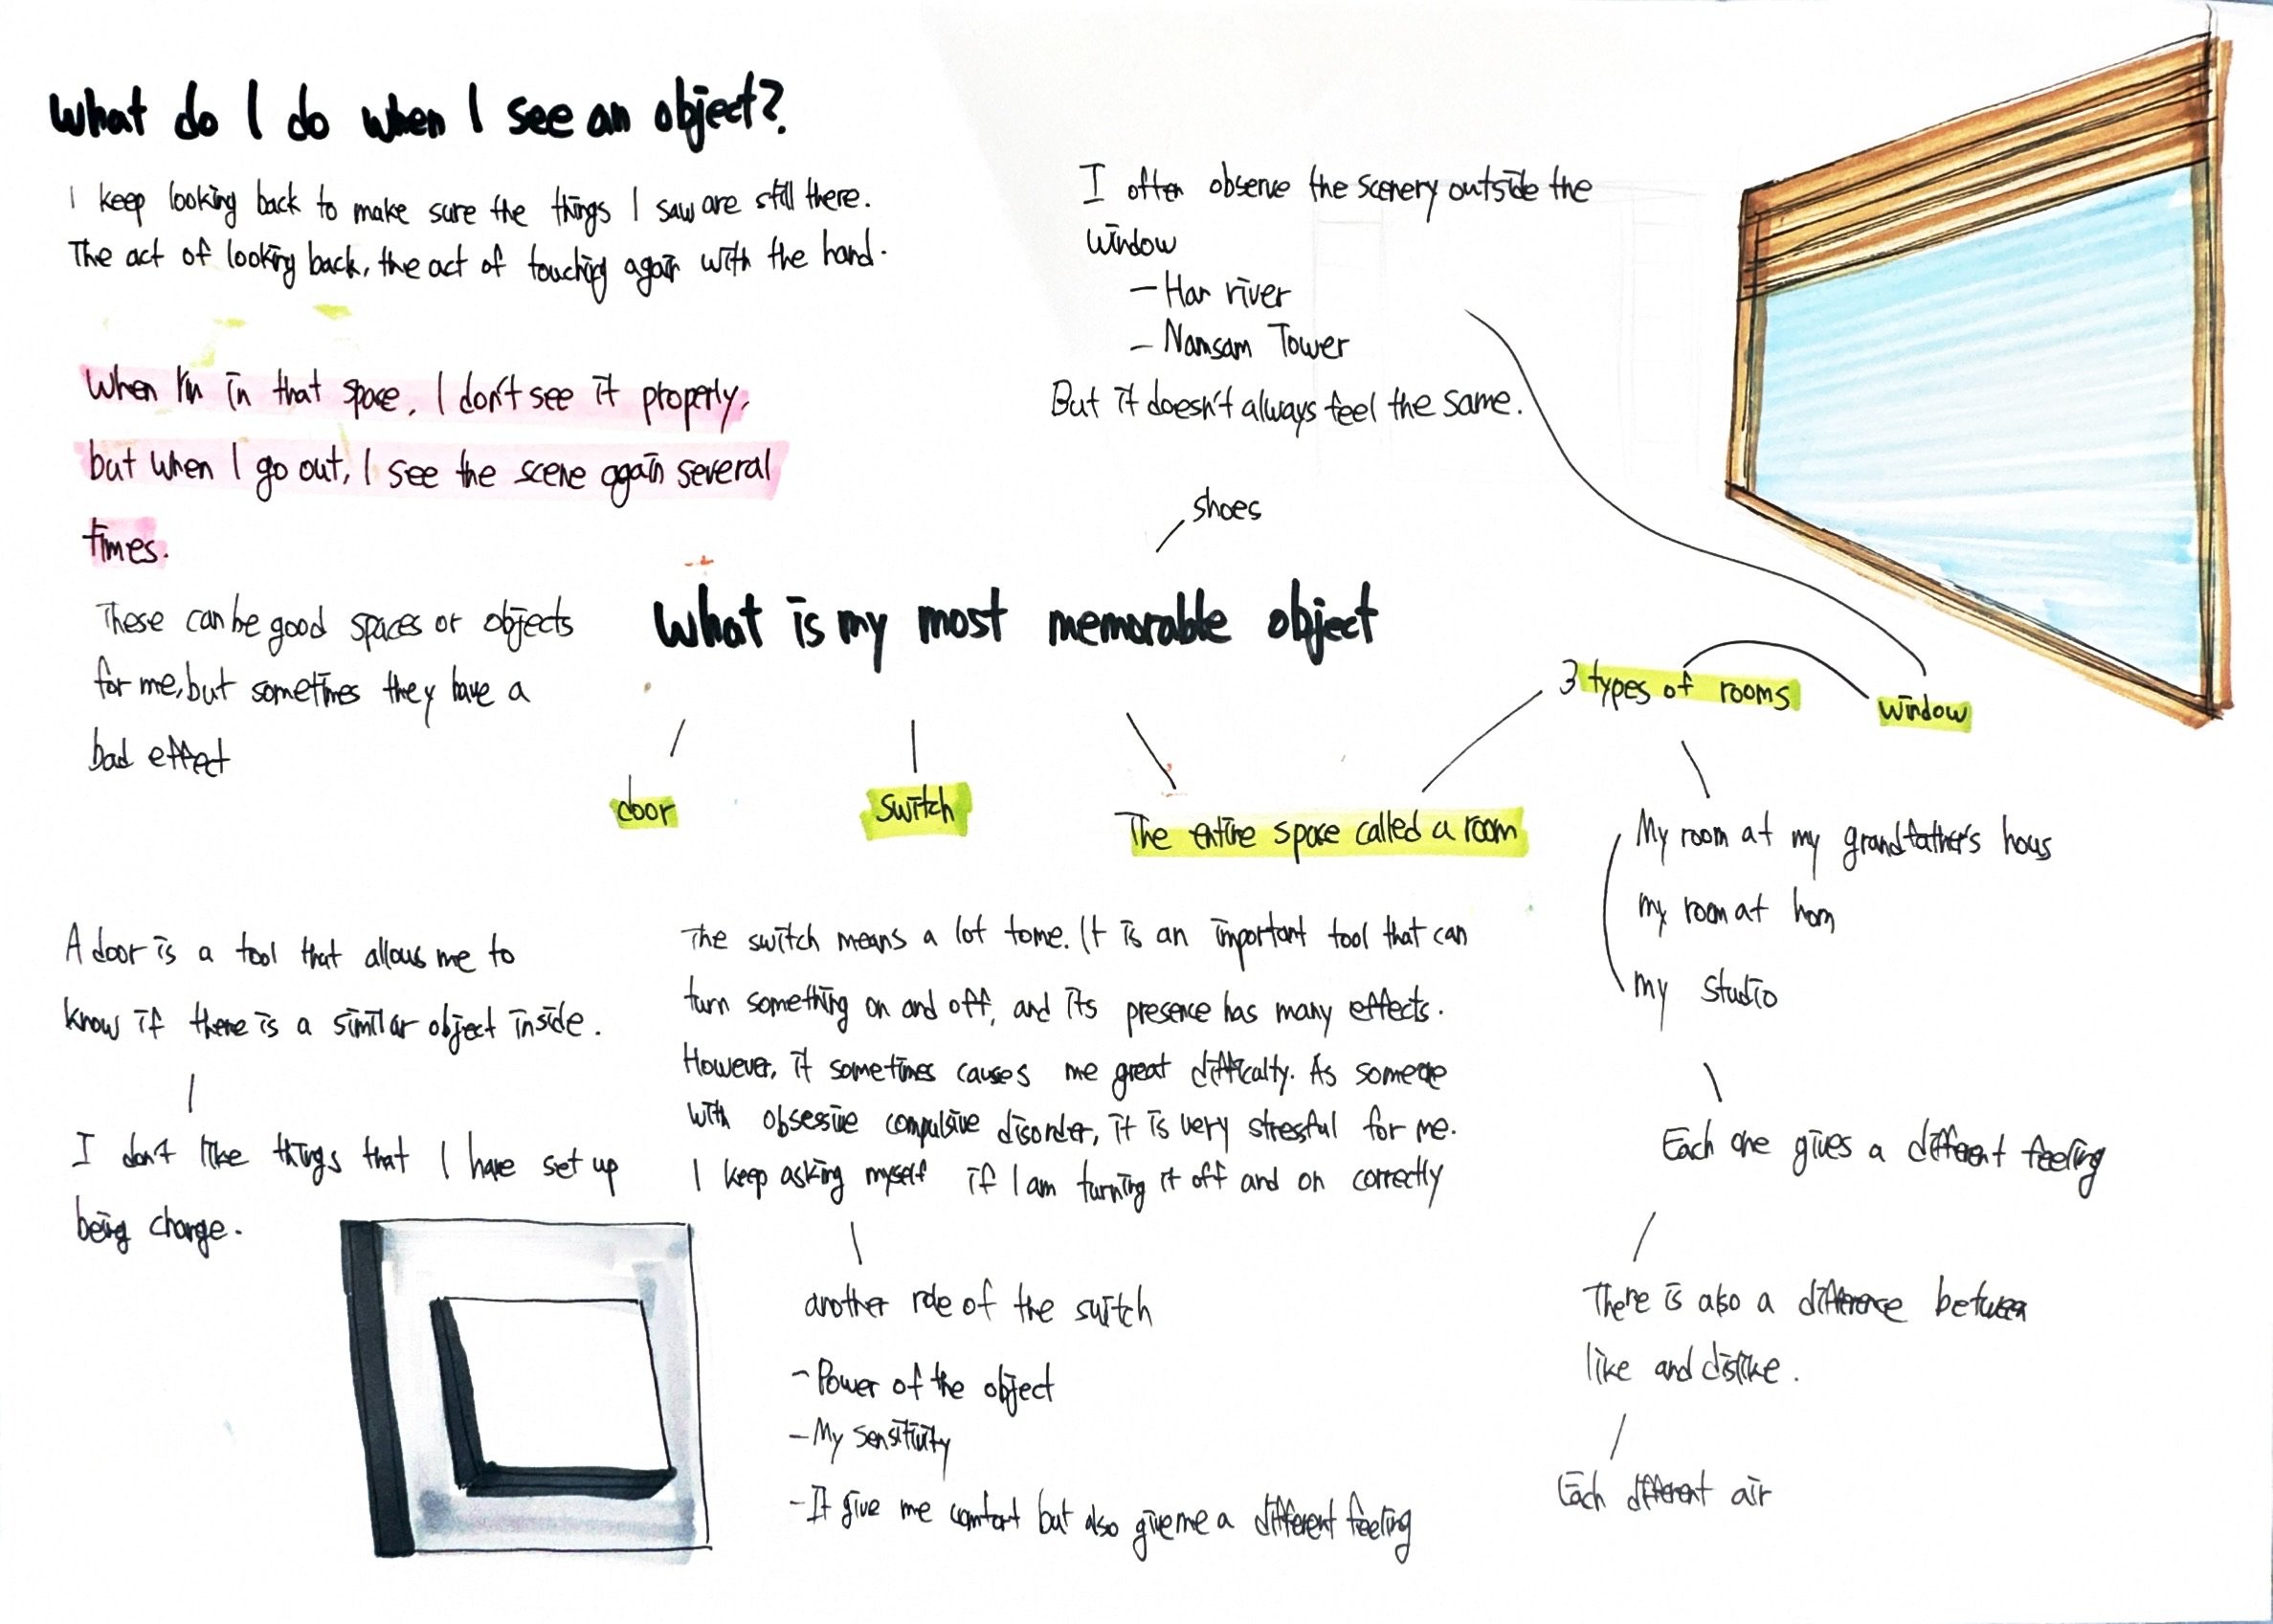 What do I do when I see an object?
I keep looking back to make sure the things I saw are still there.
The act of looking back, the act of touching again with the hand.
When I'm in that space, I don't see it properly,
but when I go out, I see the scene again several
times.
These can be good spaces or objects
for me, but sometimes they have a
bad effect
I often observe the scenery outside the
window
- Han river
- Namsam Tower
But it doesn't always feel the same.
shoes
What is my most memorable object
3 types of rooms
window
door
switch
The entire space called a room
My room at my grandfather's hous
my room at hom
my studio
Each one gives a different feeling
There is also a difference between
like and dislike.
Each different air
A door is a tool that allows me to
know if there is a similar object inside.
I don't like things that I have set up
being change.
The switch means a lot to me. It is an important tool that can
turn something on and off, and its presence has many effects.
However, it sometimes causes me great difficalty. As someone
with obsessive compulsive disorder, it is very stressful for me.
I keep asking myself if I am turning it off and on correctly
another role of the switch
- Power of the object
- My sensitivity
- It give me comfort but also give me a different feeling